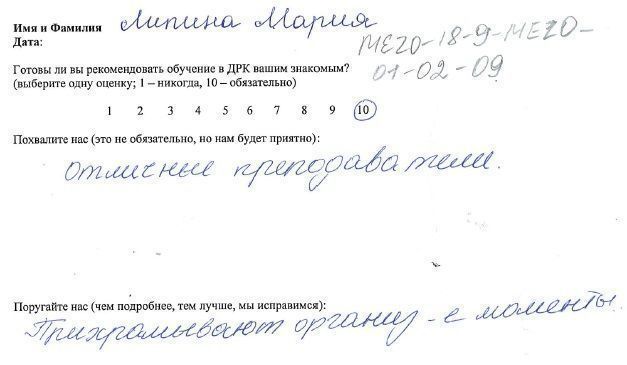 Имя и Фамилия Липина Мария
Дата:
МЕ20-18-9-МЕ20-
01-02-09
Готовы ли вы рекомендовать обучение в ДРК вашим знакомым?
(выберите одну оценку; 1 – никогда, 10 – обязательно)
1 2 3 4 5 6 7 8 9 10
Похвалите нас (это не обязательно, но нам будет приятно):
Отличные преподаватели.
Поругайте нас (чем подробнее, тем лучше, мы исправимся):
Прихрамывают организ-е моменты.